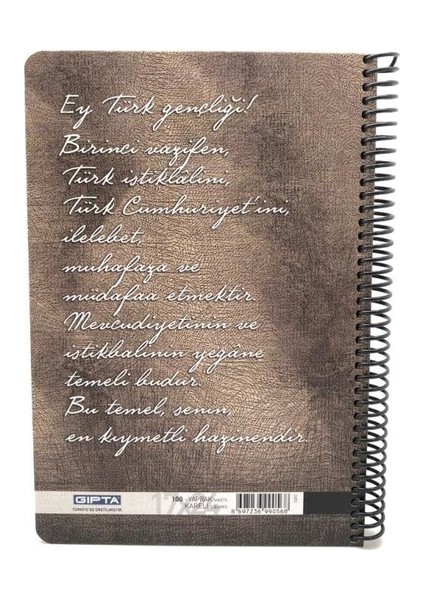 Ey Türk gençliği!
Birinci vazifen,
Türk istiklâlini,
Türk Cumhuriyet'ini,
ilelebet,
muhafaza ve
müdafaa etmektir.
Mevcudiyetinin ve
istikbalinin yegâne
temeli budur.
Bu temel, senin,
en kıymetli hazinendir.
GIPTA
TÜRKİYE'DE ÜRETİLMİŞTİR.
100 - YAPRAK
KARELİ
8 697236 990568